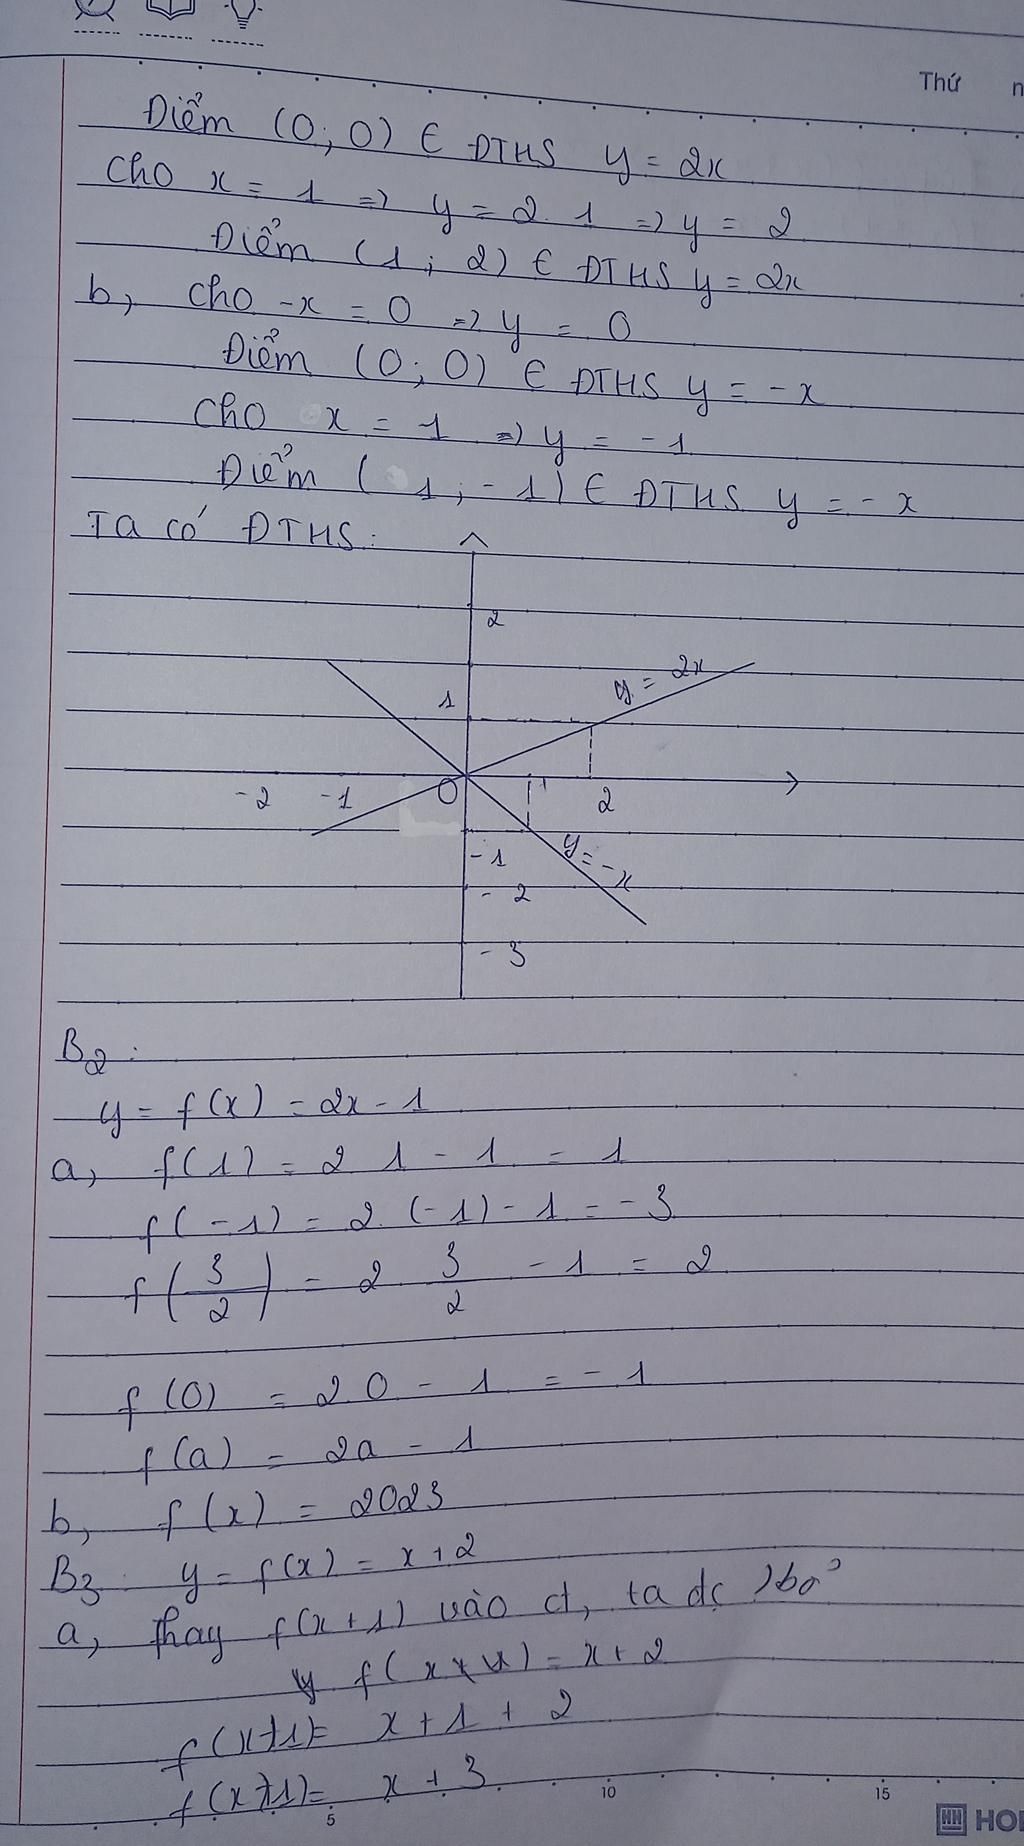 Thứ
Điểm (0; 0) ∈ ĐTHS y = 2x
Cho x = 1 => y = 2. 1 => y = 2
Điểm (1; 2) ∈ ĐTHS y = 2x
b, Cho -x = 0 => y = 0
Điểm (0; 0) ∈ ĐTHS y = -x
Cho x = 1 => y = -1
Điểm (1; -1) ∈ ĐTHS y = -x
Ta có ĐTHS:
2
y = 2x
1
-2 -1 O 1 2
-1 y = -x
-2
-3
B2:
y = f(x) = 2x - 1
a, f(1) = 2 1 - 1 = 1
f(-1) = 2. (-1) - 1 = -3
f(3/2) = 2 3/2 - 1 = 2
f(0) = 2 0 - 1 = -1
f(a) = 2a - 1
b, f(x) = 2023
B3: y = f(x) = x + 2
a, Thay f(x+1) vào ct, ta đc
= x + 2
f(x+1) = x + 1 + 2
f(x+1) = x + 3
5 10 15